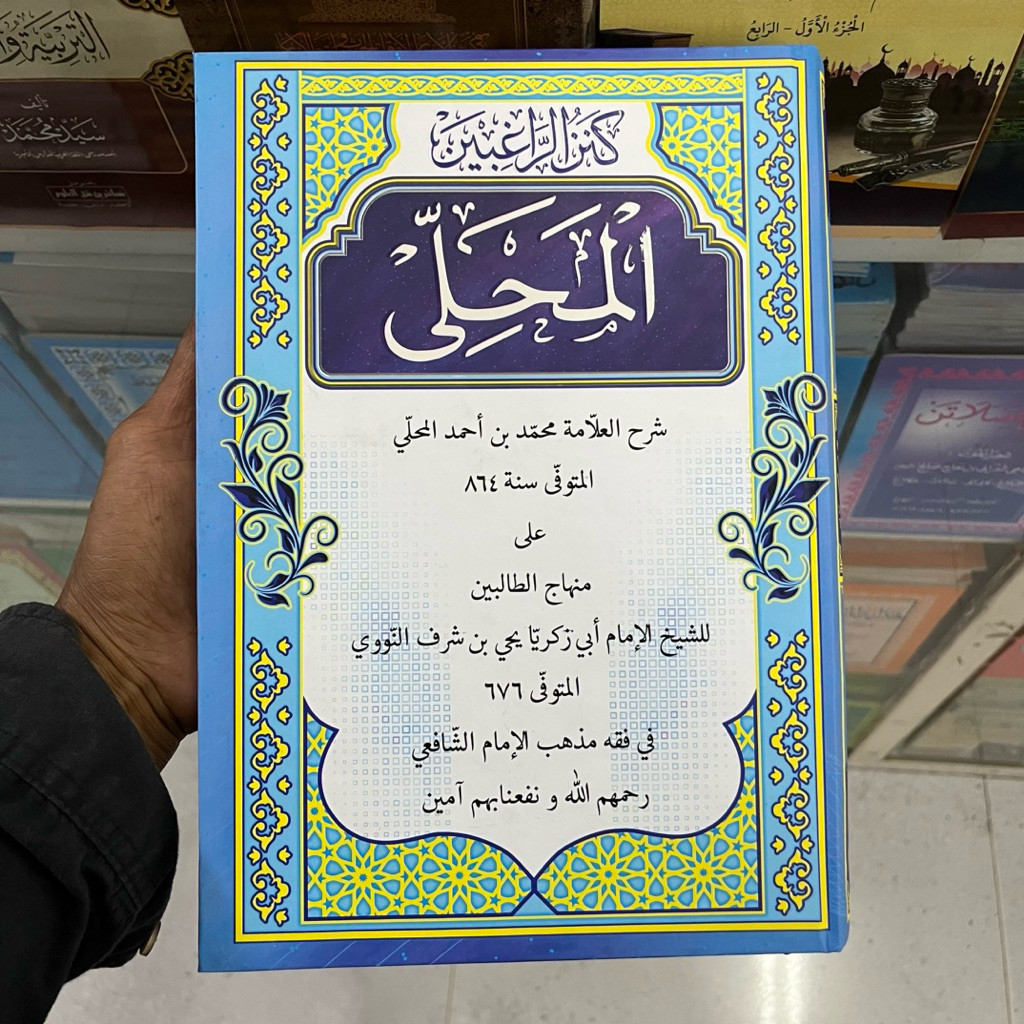 كنز الراغبين
المَحَلِّى
شرح العلّامة محمّد بن أحمد المحلّي
المتوفّى سنة ٨٦٤
على
منهاج الطالبين
للشيخ الإمام أبي زكريّا يحي بن شرف النّووي
المتوفّى ٦٧٦
في فقه مذهب الإمام الشّافعي
رحمهم الله و نفعنابهم آمين
الجُزءُ الْأَوَّلُ - الرَابِعُ
التربية
تأليف
سيد محمد